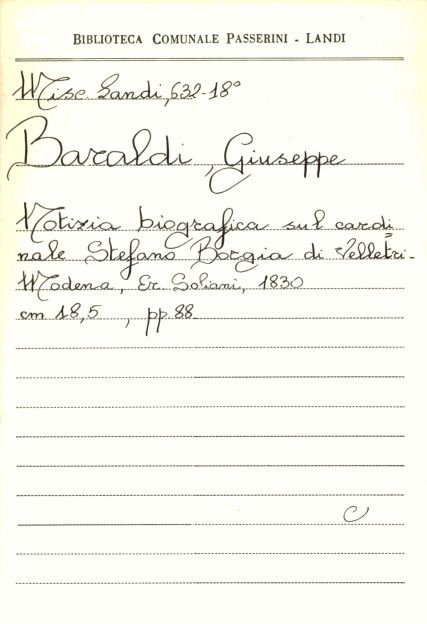 BIBLIOTECA COMUNALE PASSERINI - LANDI
Misc. Landi, 632-18°
Baraldi, Giuseppe
Notizia biografica sul cardi
nale Stefano Borgia di Velletri-
Modena, Er. Soliani, 1830
cm 18,5 , pp. 88
C